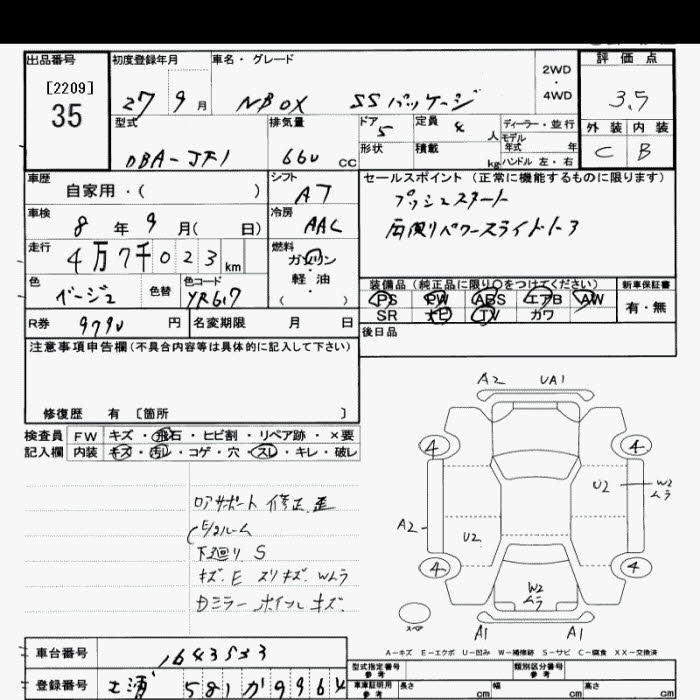 出品番号 初度登録年月 車名・グレード 評価点
[2209]
35
27 9月 NBOX SSパッケージ 2WD・4WD 3.5
型式 排気量 ドア 5 定員 4人 ディーラー・並行 外装 内装
DBA-JF1 660cc 形状 積載 kg モデル年式 年 ハンドル 左・右 C B
車歴 自家用・( ) シフト AT セールスポイント (正常に機能するものに限ります)
車検 8年9月( 日) 冷房 AAC プッシュスタート
走行 4万7千023km 燃料 ガソリン・軽油 ( ) 両側パワースライドドア
色 ベージュ 色替 色コード YR617 装備品 (純正品に限り○をつけてください) 新車保証書
PS PW ABS エアB AW 有・無
SR ナビ TV カワ
R券 9790円 名変期限 月 日 後日品
注意事項申告欄(不具合内容等は具体的に記入して下さい)
修復歴 有 [箇所 ]
検査員 FW キズ・飛石・ヒビ割・リペア跡・×要
記入欄 内装 キズ・汚レ・コゲ・穴・スレ・キレ・破レ
A2 UA1
4 4
U2 W2 ムラ
A2 U2
4 4
W2 ムラ
スペア
A1 A1
ロアサポート 修正 歪
下廻り S
キズ.E スリキズ. Wムラ
Dミラー ホイルキズ.
A-キズ E-エクボ U-凹み W-補修跡 S-サビ C-腐食 XX-交換済
車台番号 1643533 型式指定番号 参考 類別区分番号 参考
登録番号 土浦 581か9964 車庫証明用 参考 長さ cm 幅 cm 高さ cm